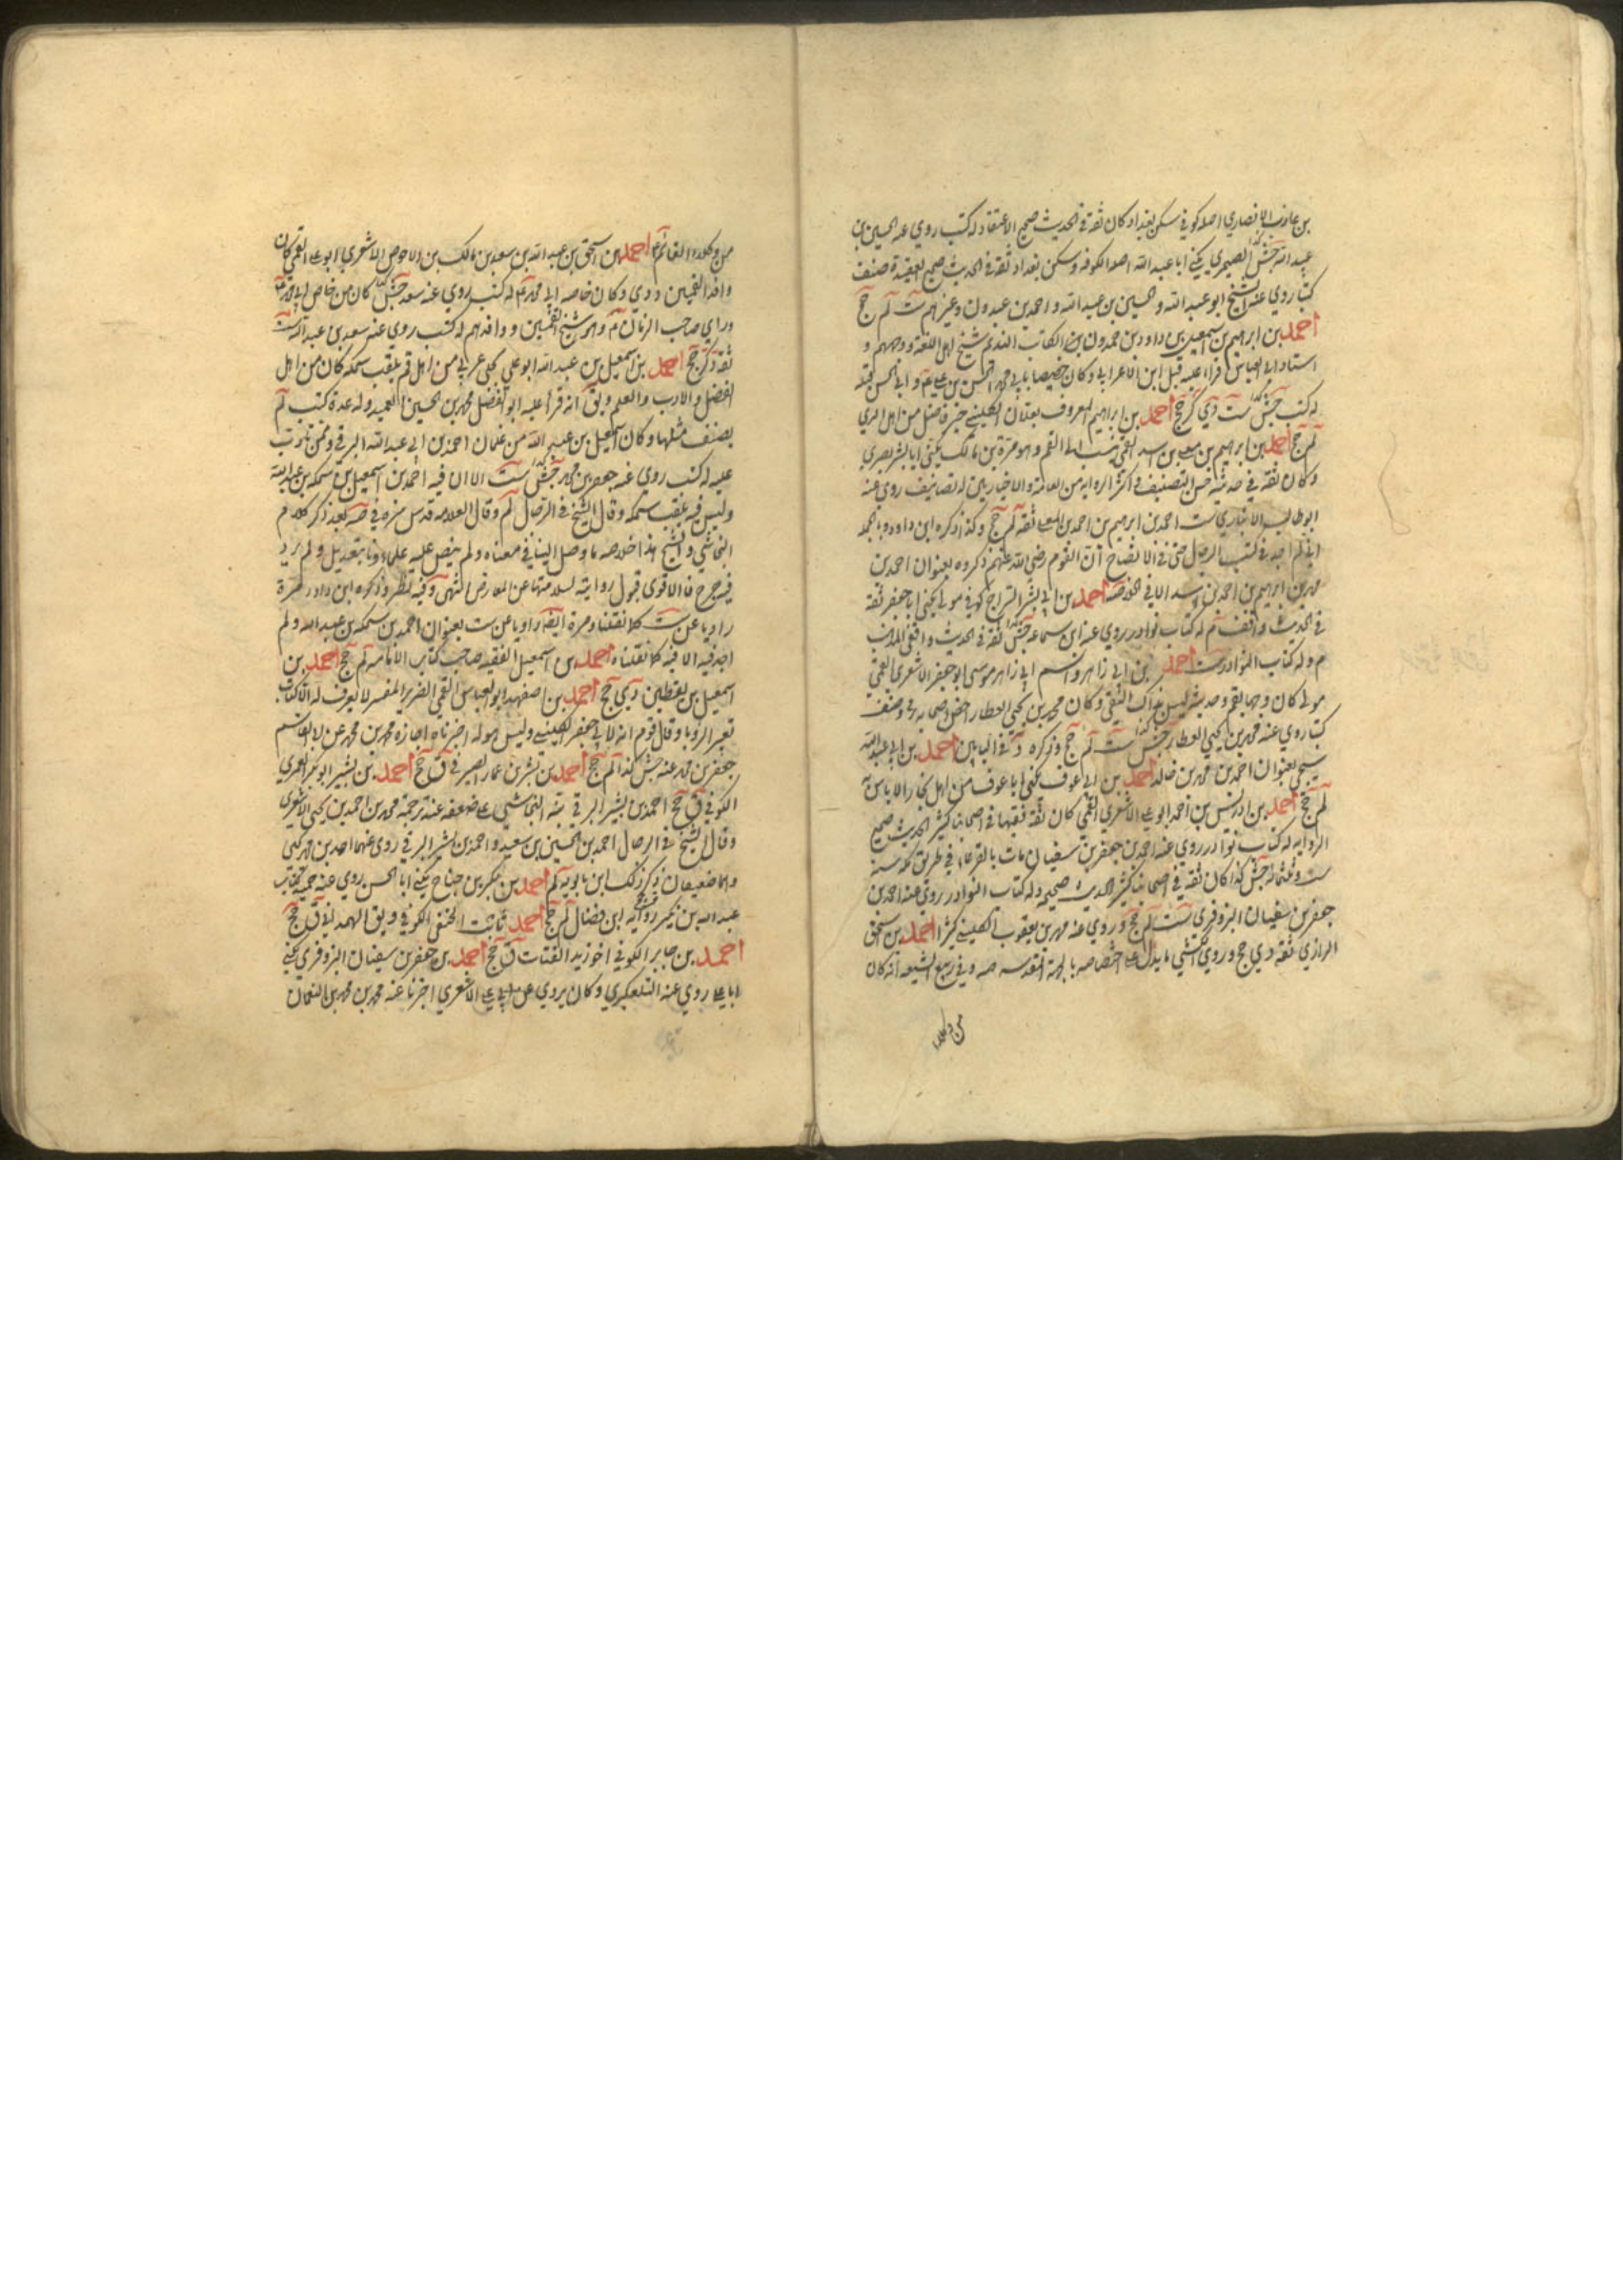 بن عازب الانصاري اصله كوفي سكن بغداد كان ثقة في الحديث صحيح الاعتقاد له كتب روي عنه الحسين بن
عبيد الله جش الصيمري يكنى ابا عبد الله اصله الكوفه وسكن بغداد ثقة في الحديث صحيح العقيدة صنف
كتبا روي عنه الشيخ ابو عبد الله والحسين بن عبيد الله واحمد بن عبدون وغيرهم ست لم جخ
احمد بن ابراهيم بن اسمعيل بن داود بن حمدون الكاتب النديم شيخ اهل اللغة ووجههم و
استاد ابي العباس قراء عليه قبل ابن الاعرابي وكان خصيصا بابي محمد الحسن بن علي ع و ابي الحسن قبله
له كتب جش ست دي كر جخ احمد بن ابراهيم المعروف بعلان الكليني خير فاضل من اهل الري
لم جخ احمد بن ابراهيم بن معلى بن اسد العمي ينسب الى العم وهو مرة بن مالك يكنى ابا بشر بصري
وكان ثقة في حديثه حسن التصنيف واكثر الرواية من العامة والاخباريين له تصانيف روي عنه
ابو طالب الانباري ست احمد بن ابراهيم بن احمد بن المعلى ثقة لم جخ وكذا ذكره ابن داود وبالجملة
اني لم اجد في كتب الرجال حتى في الايضاح ان القوم رضي الله عنهم ذكروه بعنوان احمد بن
محمد بن ابراهيم بن احمد بن اسد الا في الخلاصة احمد بن ابي بشر السراج كوفي مولى يكنى ابا جعفر ثقة
في الحديث واقف م له كتاب نوادر روي عنه ابن سماعة جش ثقة في الحديث واقفي المذهب
م وله كتاب النوادر ست احمد بن ابي زاهر واسم ابي زاهر موسى ابو جعفر الاشعري القمي
مولى كان وجها بقم وحديثه ليس بذاك النقي وكان محمد بن يحيى العطار اخص اصحابه به وصنف
كتبا روي عنه محمد بن يحيى العطار جش ست لم جخ وذكره د في البابين احمد بن ابي عبد الله
سيجي بعنوان احمد بن محمد بن خالد احمد بن ابي عوف يكنى ابا عوف من اهل بخارا لا باس به
لم جخ احمد بن ادريس بن احمد ابو علي الاشعري القمي كان ثقة فقيها في اصحابنا كثير الحديث صحيح
الرواية له كتاب نوادر روي عنه احمد بن جعفر بن سفيان مات بالقرعاء في طريق مكة سنة
ست وثلثمائة جش كذا كان ثقة في اصحابنا كثير الحديث صحيحه وله كتاب النوادر روي عنه احمد بن
جعفر بن سفيان البزوفري ست لم جخ وروي عنه محمد بن يعقوب الكليني كثيرا احمد بن اسحق
الرازي ثقة دي جخ وروي الكشي ما يدل على اختصاصه بالجهة المقدسة صه وفي ربيع الشيعة انه كان
من وكلاء
من وكلاء القائم ع احمد بن اسحق بن عبد الله بن سعد بن مالك بن الاحوص الاشعري ابو علي القمي كان
وافد القميين د دي وكان خاصة ابي محمد ع له كتب روي عنه سعد جش كان من خاص ابي محمد ع
وراي صاحب الزمان ع وهو شيخ القميين ووافدهم له كتب روي عنه سعد بن عبد الله ست
ثقة د كر جخ احمد بن اسمعيل بن عبد الله ابو علي بجلي عربي من اهل قم يلقب سمكة كان من اهل
الفضل والادب والعلم ويق انه قرأ عليه ابو الفضل محمد بن الحسين العميد وله عدة كتب لم
يصنف مثلها وكان اسمعيل بن عبد الله من غلمان احمد بن ابي عبد الله البرقي وممن تادب
عليه له كتب روي عنه جعفر بن محمد جش ست الا ان فيه احمد بن اسمعيل بن سمكة بن عبد الله
وليس فيه يلقب سمكة وقال الشيخ في الرجال لم وقال العلامة قدس سره في صه بعد ذكر كلام
النجاشي والشيخ هذا خلاصة ما وصل الينا في معناه ولم ينص عليه علماؤنا بتعديل ولم يرد
فيه جرح فالاقوى قبول روايته لسلامتها عن المعارض انتهى وفيه نظر وذكره ابن داود مرة
راويا عن ست كما نقلنا ومرة ايضه راويا عن ست بعنوان احمد بن سمكة بن عبد الله ولم
اجد فيه الا فيه كما نقلناه احمد بن اسمعيل الفقيه صاحب كتاب الامامه لم جخ احمد بن
اسمعيل بن يقطين دي جخ احمد بن اصفهبد ابو العباس القمي الضرير المفسر لا يعرف له الا كتاب
تعبير الرؤيا وقال قوم انه لابي جعفر الكليني وليس هو له اخبرناه اجازه محمد بن محمد عن ابي القاسم
جعفر بن محمد عنه جش كذا لم جخ احمد بن بشر بن عمار الصيرفي ق جخ احمد بن بشير ابو بكر العمري
الكوفي ق جخ احمد بن بشير البرقي نبه النجاشي على ضعفه عند ترجمة محمد بن احمد بن يحيى الاشعري
وقال الشيخ في الرجال احمد بن الحسين بن سعيد واحمد بن بشير البرقي روى عنهما احمد بن محمد بن يحيى
وهما ضعيفان ذكر ذلك ابن بابويه لم احمد بن بكر بن جناح يكنى ابا الحسن روي عنه حميد كتاب
عبد الله بن بكير رواية ابن فضال لم جخ احمد بن ثابت الحنفي الكوفي ويق الهمداني ق جخ
احمد بن جابر الكوفي اخو زيد القتات ق جخ احمد بن جعفر بن سفيان البزوفري يكنى
ابا علي روي عنه التلعكبري وكان يروي عن ابي علي الاشعري اخبرنا عنه محمد بن محمد بن النعمان